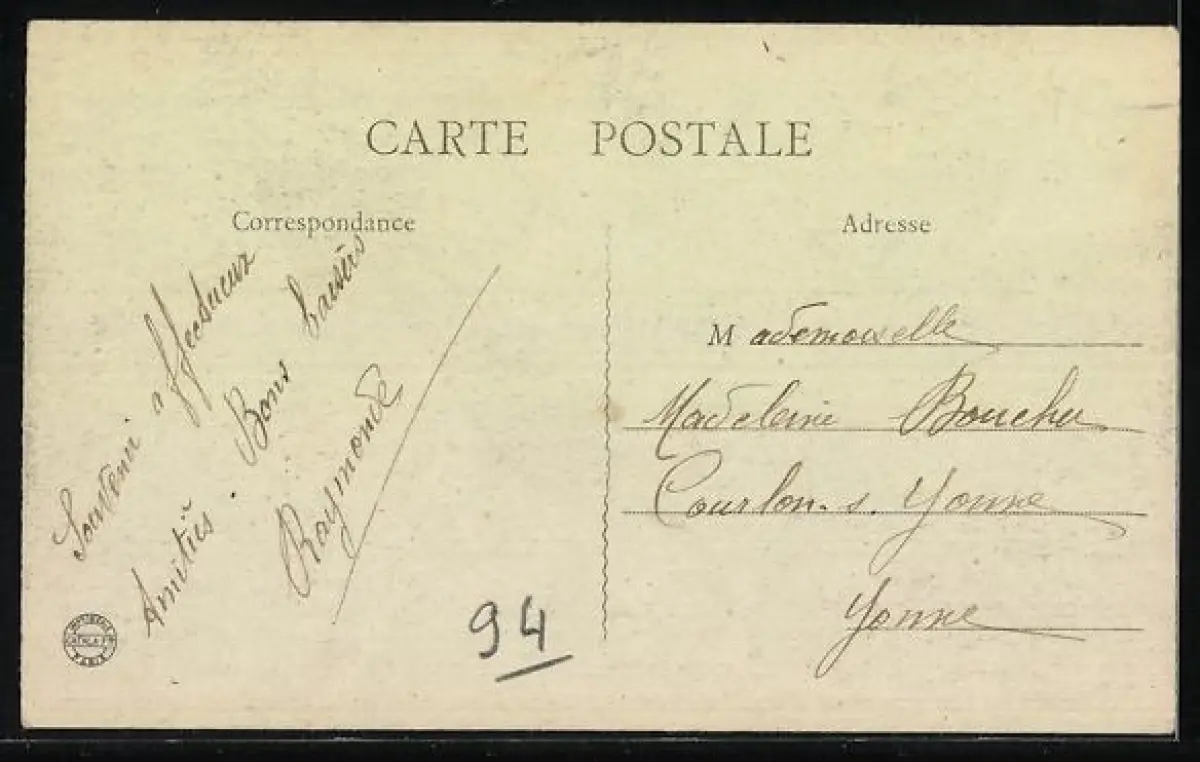 CARTE POSTALE
Correspondance
Adresse
Souvenir affectueux
Amitiés. Bons baisers
Raymonde
Mademoiselle
Madeleine Bouchu
Courlon. s. Yonne
Yonne
94
PARIS